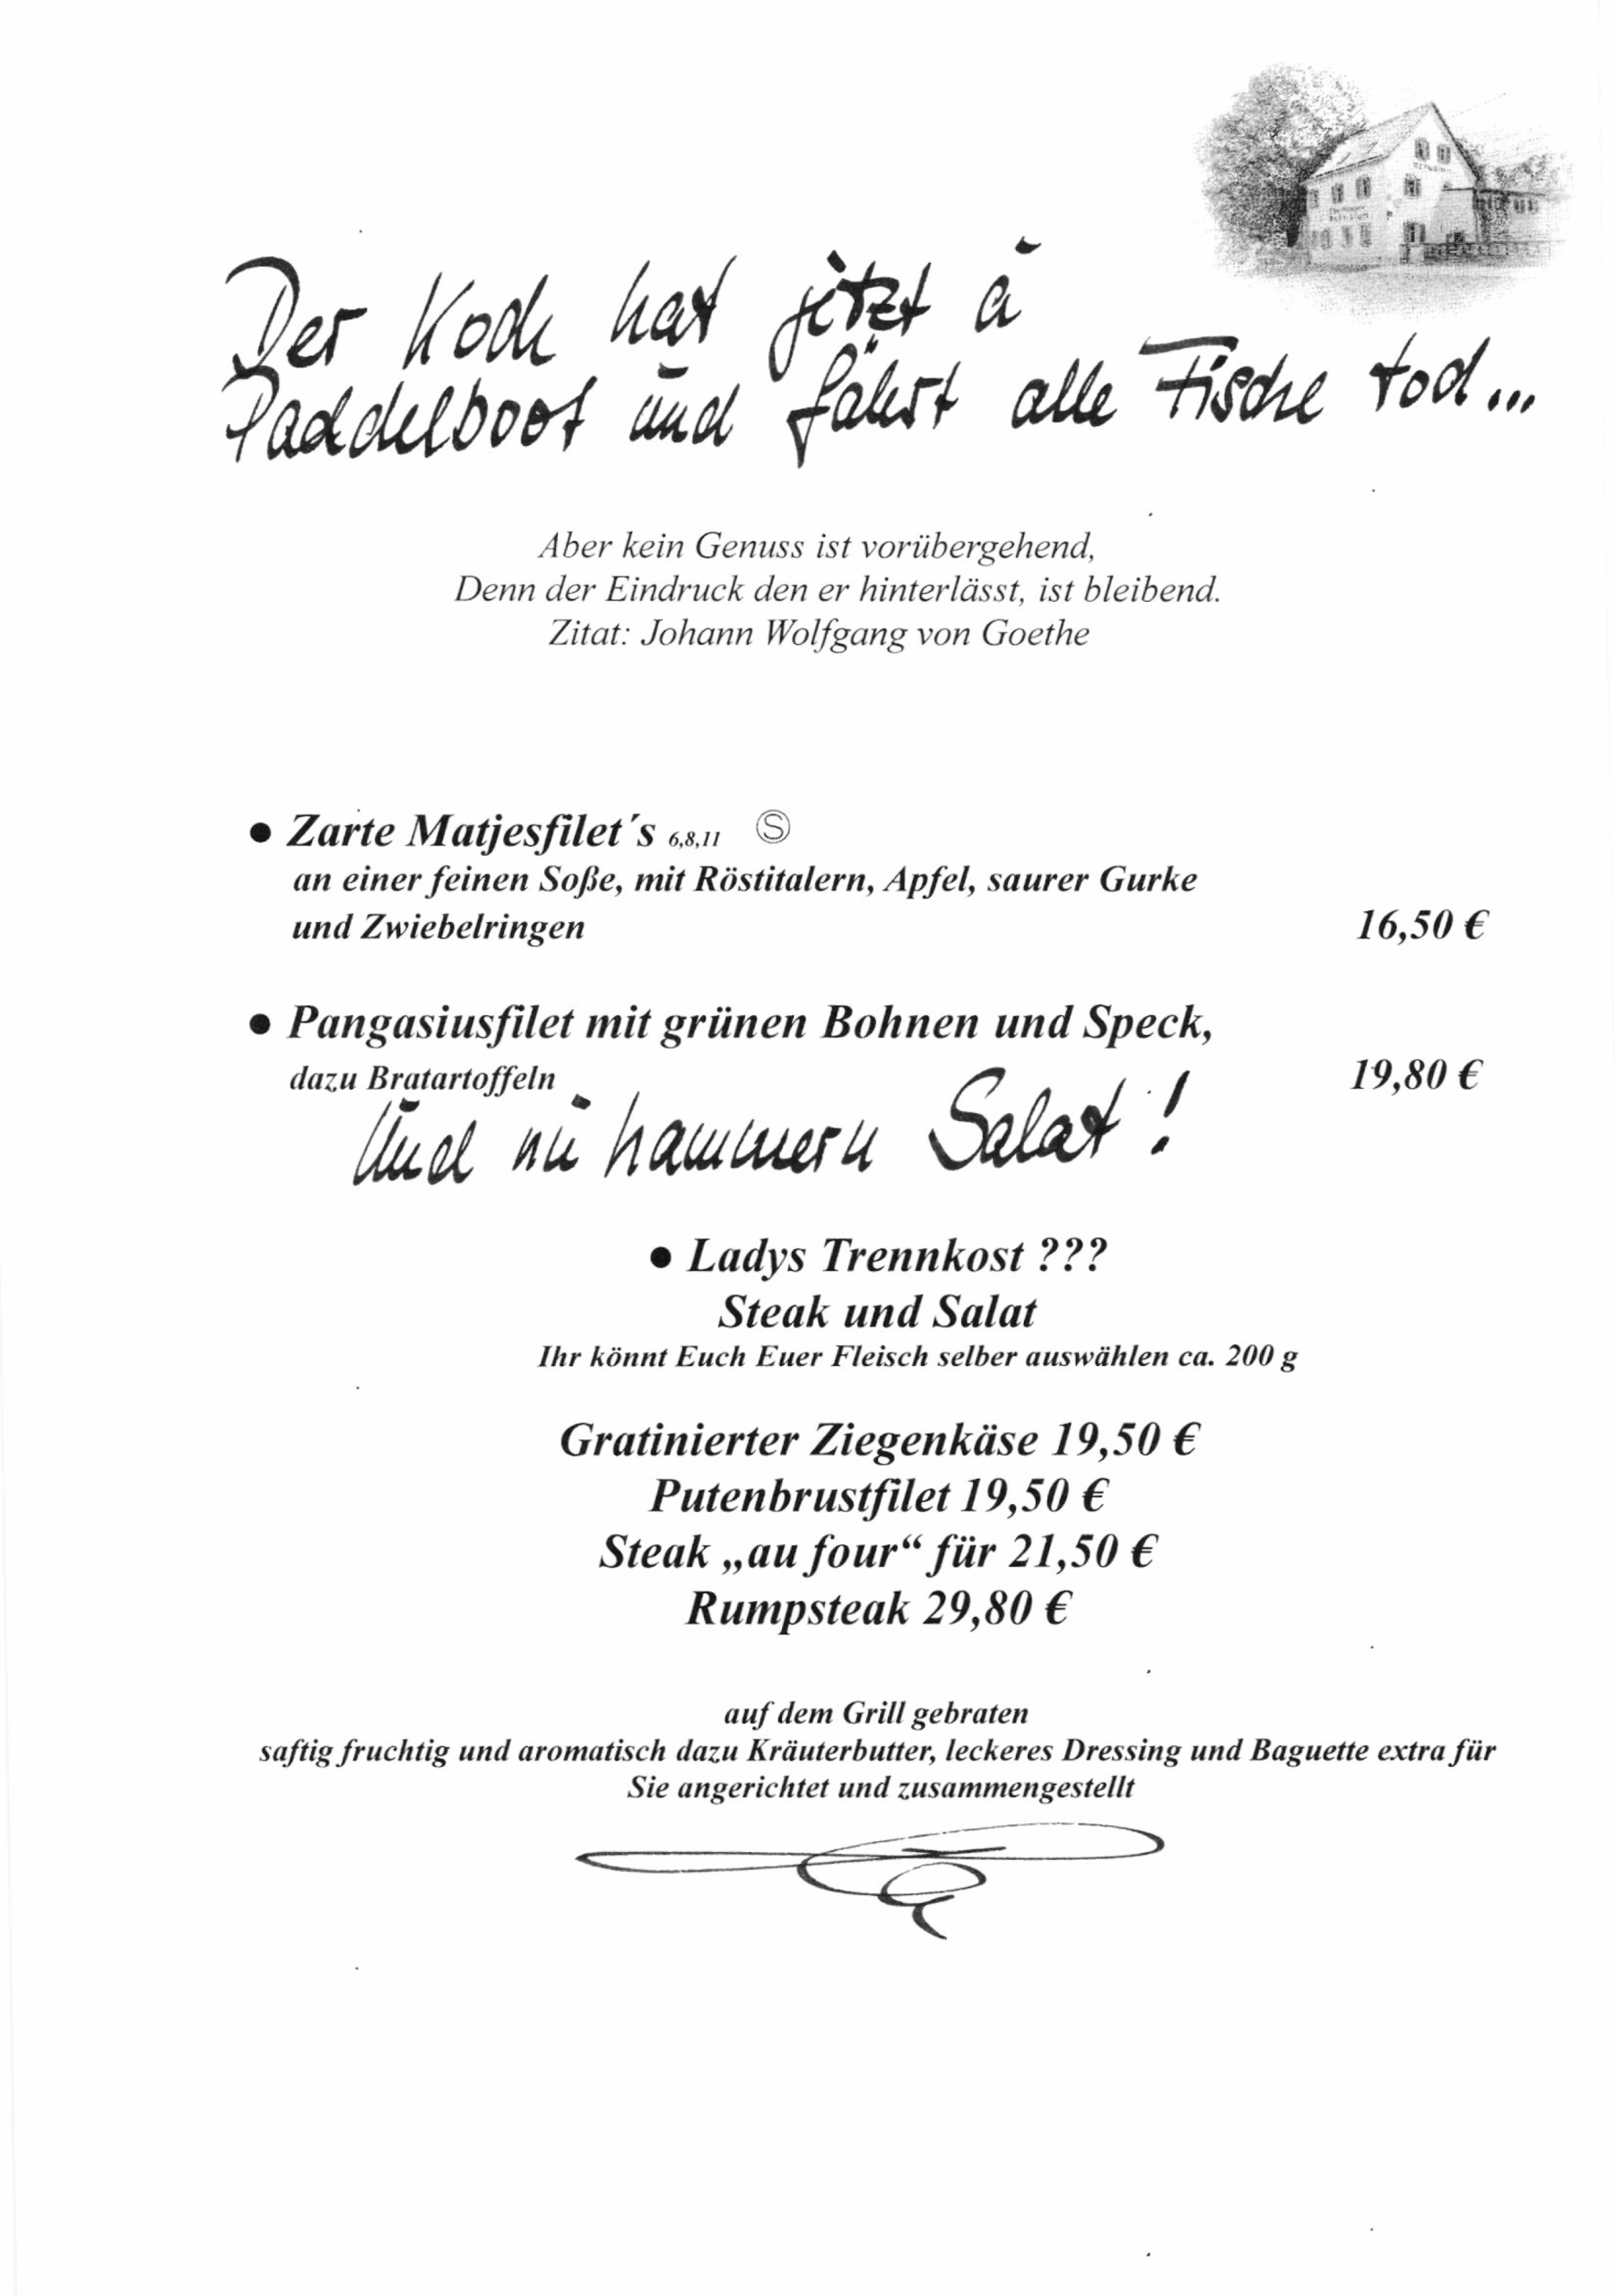 Der Koch hat jetzt à
Paddelboot und fährt alle Fische tod...
Aber kein Genuss ist vorübergehend,
Denn der Eindruck den er hinterlässt, ist bleibend.
Zitat: Johann Wolfgang von Goethe
● Zarte Matjesfilet´s 6,8,11 Ⓢ
an einer feinen Soße, mit Röstitalern, Apfel, saurer Gurke
und Zwiebelringen 16,50 €
● Pangasiusfilet mit grünen Bohnen und Speck,
dazu Bratartoffeln 19,80 €
Und nu hammern Salat!
● Ladys Trennkost ???
Steak und Salat
Ihr könnt Euch Euer Fleisch selber auswählen ca. 200 g
Gratinierter Ziegenkäse 19,50 €
Putenbrustfilet 19,50 €
Steak „au four“ für 21,50 €
Rumpsteak 29,80 €
auf dem Grill gebraten
saftig fruchtig und aromatisch dazu Kräuterbutter, leckeres Dressing und Baguette extra für
Sie angerichtet und zusammengestellt